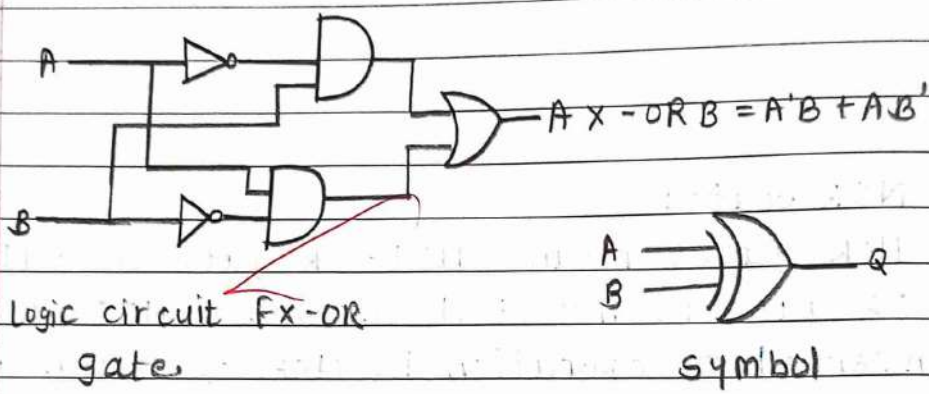 A
A X-OR B = A'B + AB'
B
A
B
Q
Logic circuit EX-OR
gate
symbol